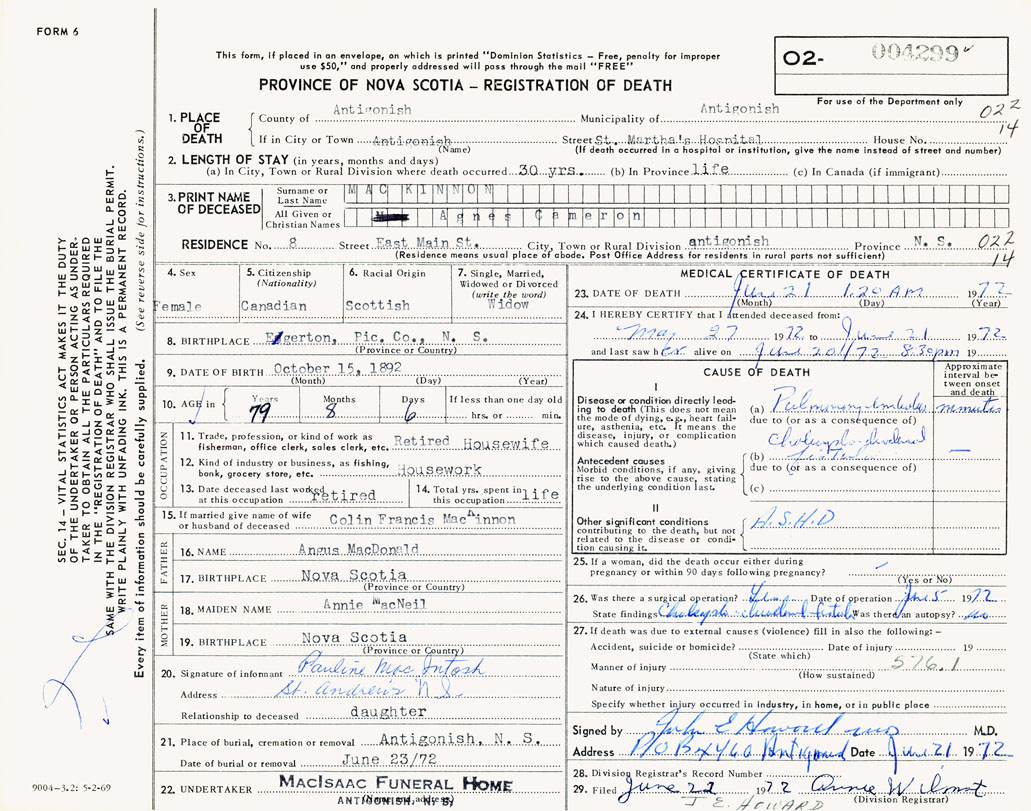 FORM 6
This form, if placed in an envelope, on which is printed "Dominion Statistics – Free, penalty for improper
use $50," and properly addressed will pass through the mail "FREE"
PROVINCE OF NOVA SCOTIA – REGISTRATION OF DEATH
O2- 004299
For use of the Department only
022
14
1. PLACE OF DEATH
County of Antigonish Municipality of Antigonish
If in City or Town Antigonish Street St. Martha's Hospital House No.
(Name) (If death occurred in a hospital or institution, give the name instead of street and number)
2. LENGTH OF STAY (in years, months and days)
(a) In City, Town or Rural Division where death occurred 30 yrs. (b) In Province life (c) In Canada (if immigrant)
3. PRINT NAME OF DECEASED
Surname or Last Name MAC KINNON
All Given or Christian Names Agnes Cameron
RESIDENCE No. 8 Street East Main St. City, Town or Rural Division antigonish Province N. S. 022
14
(Residence means usual place of abode. Post Office Address for residents in rural parts not sufficient)
4. Sex
Female
5. Citizenship
(Nationality)
Canadian
6. Racial Origin
Scottish
7. Single, Married,
Widowed or Divorced
(write the word)
Widow
8. BIRTHPLACE Egerton, Pic. Co., N. S.
(Province or Country)
9. DATE OF BIRTH October 15, 1892
(Month) (Day) (Year)
10. AGE in
Years Months Days If less than one day old
79 8 6 hrs. or min.
OCCUPATION
11. Trade, profession, or kind of work as
fisherman, office clerk, sales clerk, etc. Retired Housewife
12. Kind of industry or business, as fishing,
bank, grocery store, etc. Housework
13. Date deceased last worked
at this occupation retired
14. Total yrs. spent in
this occupation life
15. If married give name of wife
or husband of deceased Colin Francis MacKinnon
FATHER
16. NAME Angus MacDonald
17. BIRTHPLACE Nova Scotia
(Province or Country)
MOTHER
18. MAIDEN NAME Annie MacNeil
19. BIRTHPLACE Nova Scotia
(Province or Country)
20. Signature of informant Pauline MacIntosh
Address St. Andrews N.S.
Relationship to deceased daughter
21. Place of burial, cremation or removal Antigonish, N. S.
Date of burial or removal June 23/72
22. UNDERTAKER MACISAAC FUNERAL HOME
ANTIGONISH, N. S.
(Name and address)
MEDICAL CERTIFICATE OF DEATH
23. DATE OF DEATH June 21 1.20 AM 1972
(Month) (Day) (Year)
24. I HEREBY CERTIFY that I attended deceased from:
May 27 1972 to June 21 1972
and last saw her alive on June 20/72 8:30pm 19
CAUSE OF DEATH
Approximate
interval be-
tween onset
and death
I
Disease or condition directly lead-
ing to death (This does not mean
the mode of dying, e.g., heart fail-
ure, asthenia, etc. It means the
disease, injury, or complication
which caused death.)
(a) Pulmonary Embolus minutes
due to (or as a consequence of)
Antecedent causes
Morbid conditions, if any, giving
rise to the above cause, stating
the underlying condition last.
Cholecysto-duodenal
(b) fistula —
due to (or as a consequence of)
(c)
II
Other significant conditions
contributing to the death, but not
related to the disease or condi-
tion causing it.
A.S.H.D
25. If a woman, did the death occur either during
pregnancy or within 90 days following pregnancy?
(Yes or No)
26. Was there a surgical operation? Yes Date of operation June 5 1972
State findings Cholecysto-duodenal fistula Was there an autopsy? no
27. If death was due to external causes (violence) fill in also the following: –
Accident, suicide or homicide? Date of injury 19
(State which) 576.1
Manner of injury
(How sustained)
Nature of injury
Specify whether injury occurred in industry, in home, or in public place
Signed by John E Howard M.D.
Address P.O. Box 460 Antigonish Date June 21 1972
28. Division Registrar's Record Number
29. Filed June 22 1972 Annie Wilmot
(Division Registrar)
J E. HOWARD
SEC. 14 – VITAL STATISTICS ACT MAKES IT THE DUTY
OF THE UNDERTAKER OR PERSON ACTING AS UNDER-
TAKER TO OBTAIN ALL THE PARTICULARS REQUIRED
IN THE "REGISTRATION OF DEATH" AND TO FILE THE
SAME WITH THE DIVISION REGISTRAR WHO SHALL ISSUE THE BURIAL PERMIT.
WRITE PLAINLY WITH UNFADING INK. THIS IS A PERMANENT RECORD.
Every item of information should be carefully supplied. (See reverse side for instructions.)
9004-3.2: 5-2-69